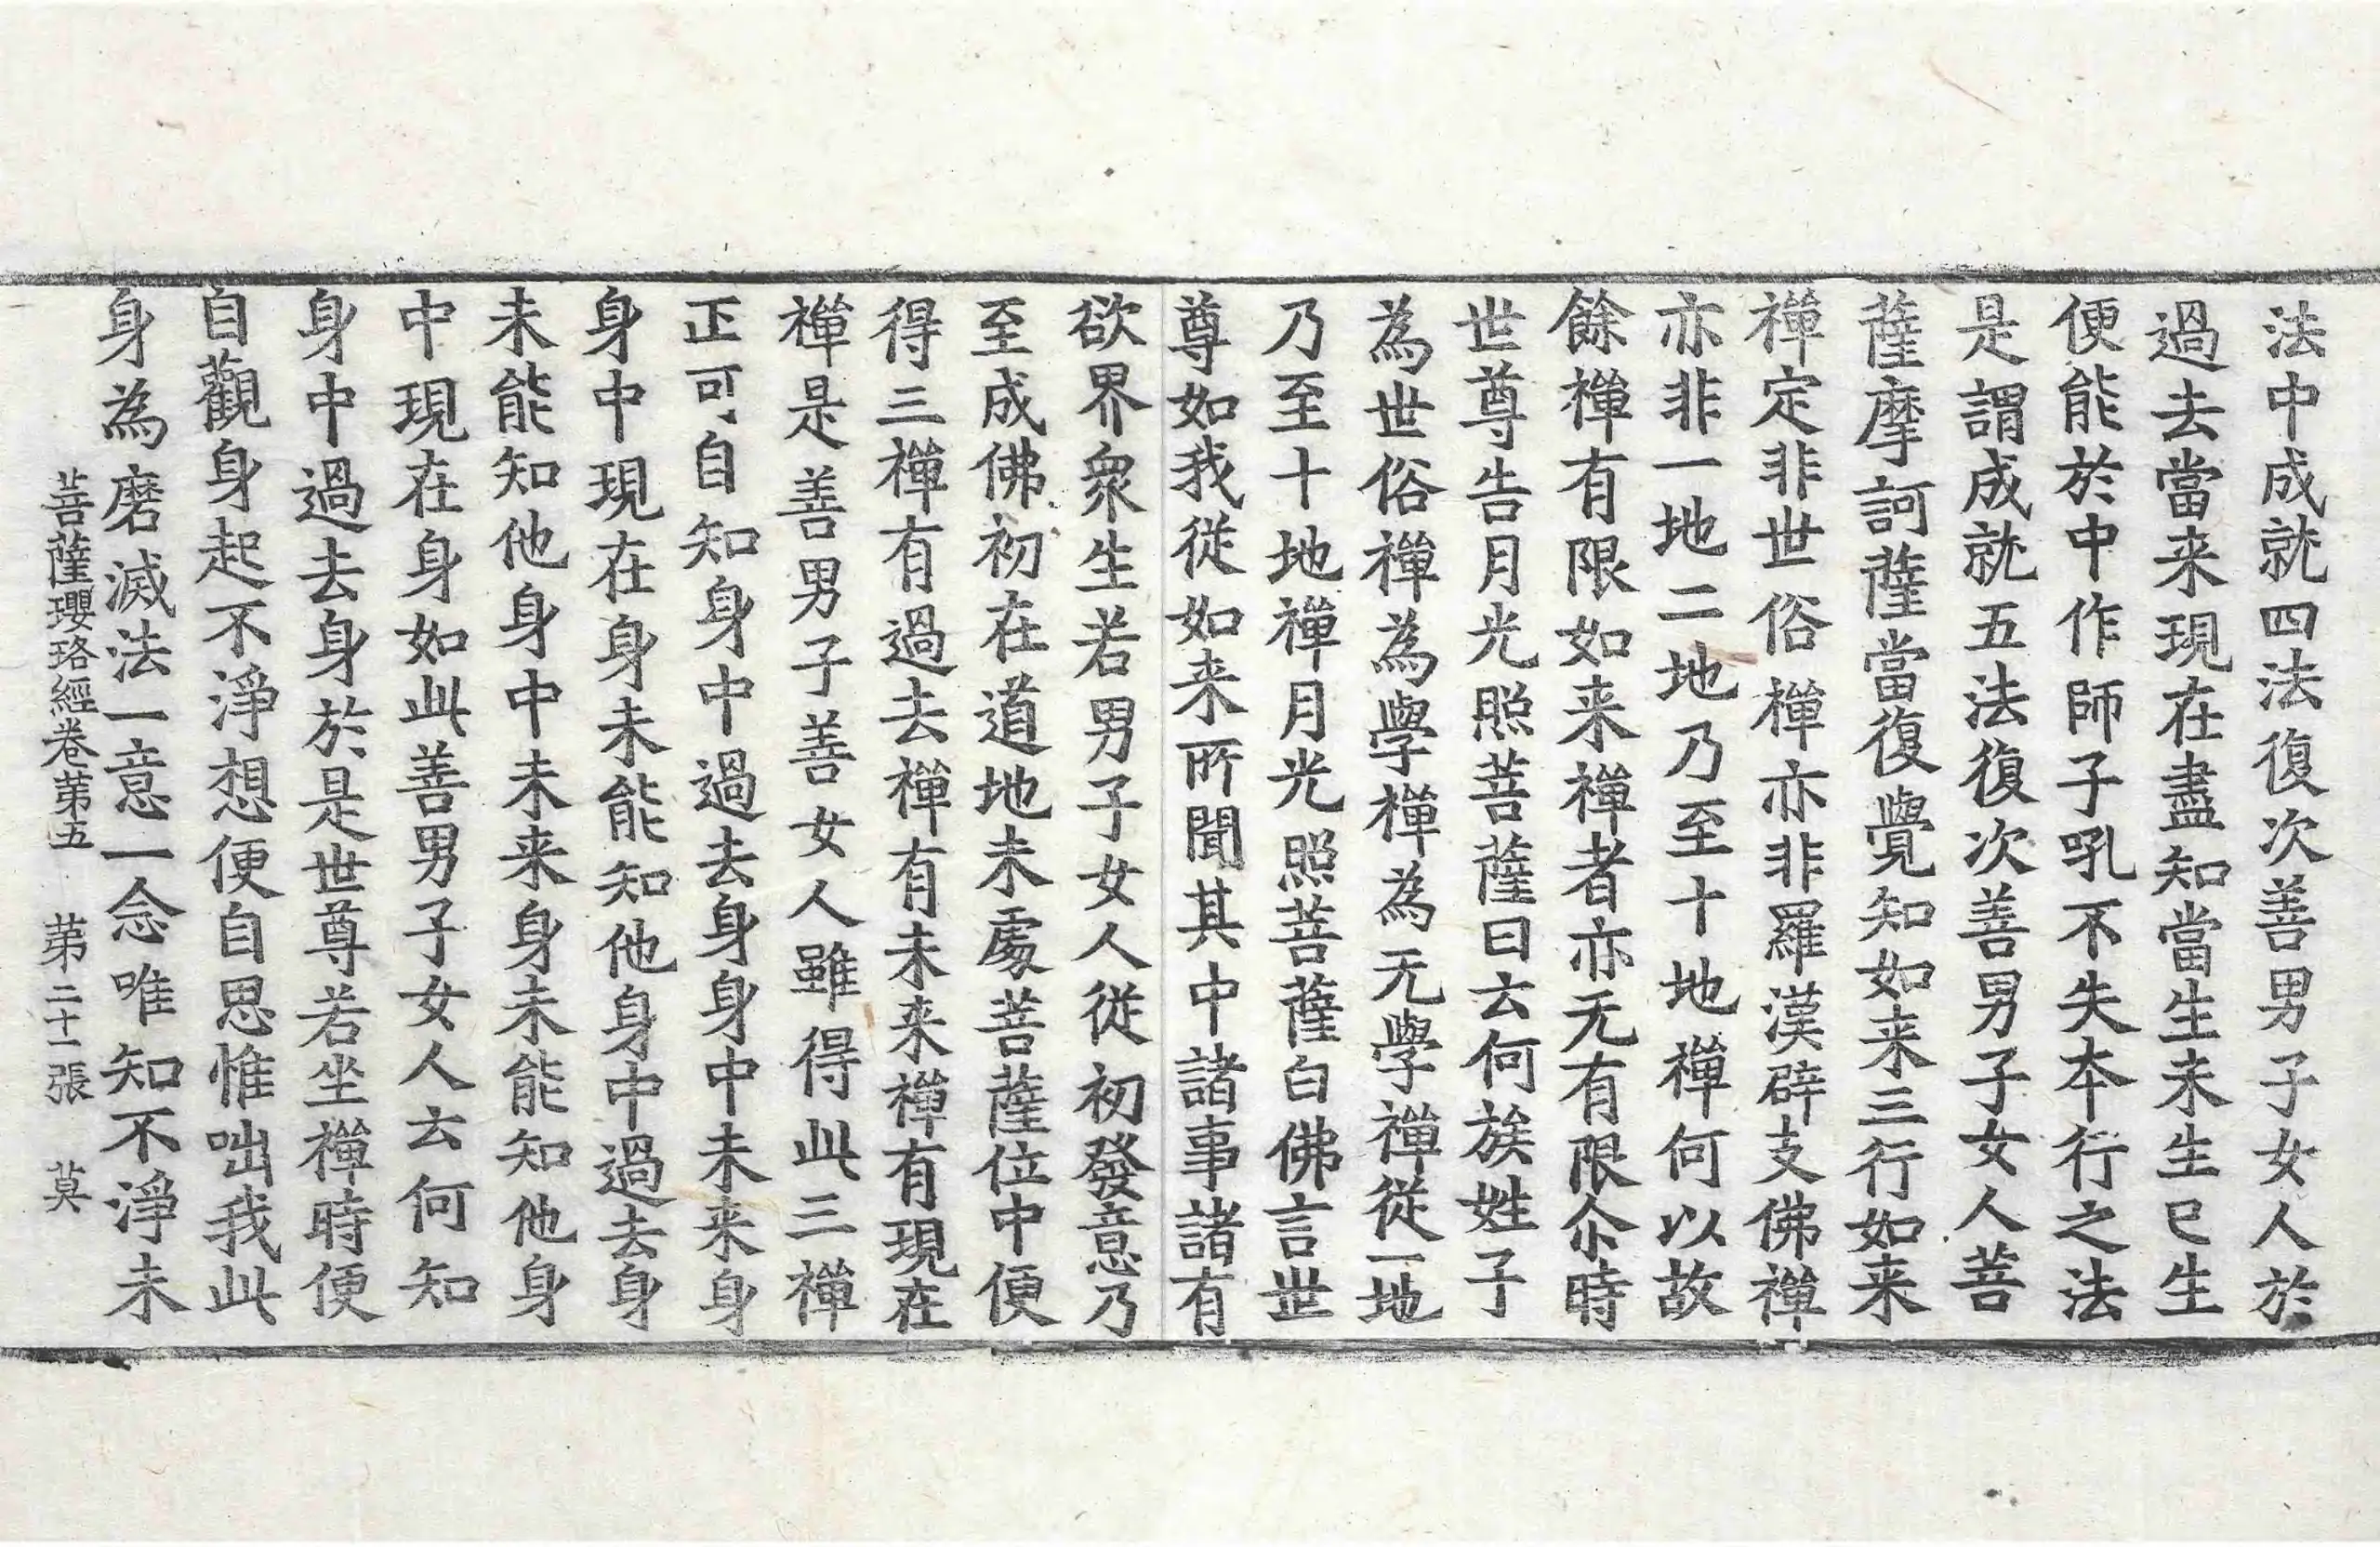 法中成就四法復次善男子女人於
過去當来現在盡知當生未生已生
便能於中作師子吼不失本行之法
是謂成就五法復次善男子女人菩
薩摩訶薩當復覺知如来三行如来
禪定非世俗禪亦非羅漢辟支佛禪
亦非一地二地乃至十地禪何以故
餘禪有限如来禪者亦无有限尒時
世尊告月光照菩薩曰云何族姓子
為世俗禪為學禪為无學禪從一地
乃至十地禪月光照菩薩白佛言世
尊如我從如来所聞其中諸事諸有
欲界衆生若男子女人從初發意乃
至成佛初在道地未處菩薩位中便
得三禪有過去禪有未来禪有現在
禪是善男子善女人雖得此三禪
正可自知身中過去身身中未来身
身中現在身未能知他身中過去身
未能知他身中未来身未能知他身
中現在身如此善男子女人云何知
身中過去身於是世尊若坐禪時便
自觀身起不淨想便自思惟咄我此
身為磨滅法一意一念唯知不淨未
菩薩瓔珞經卷第五　第二十二張　莫